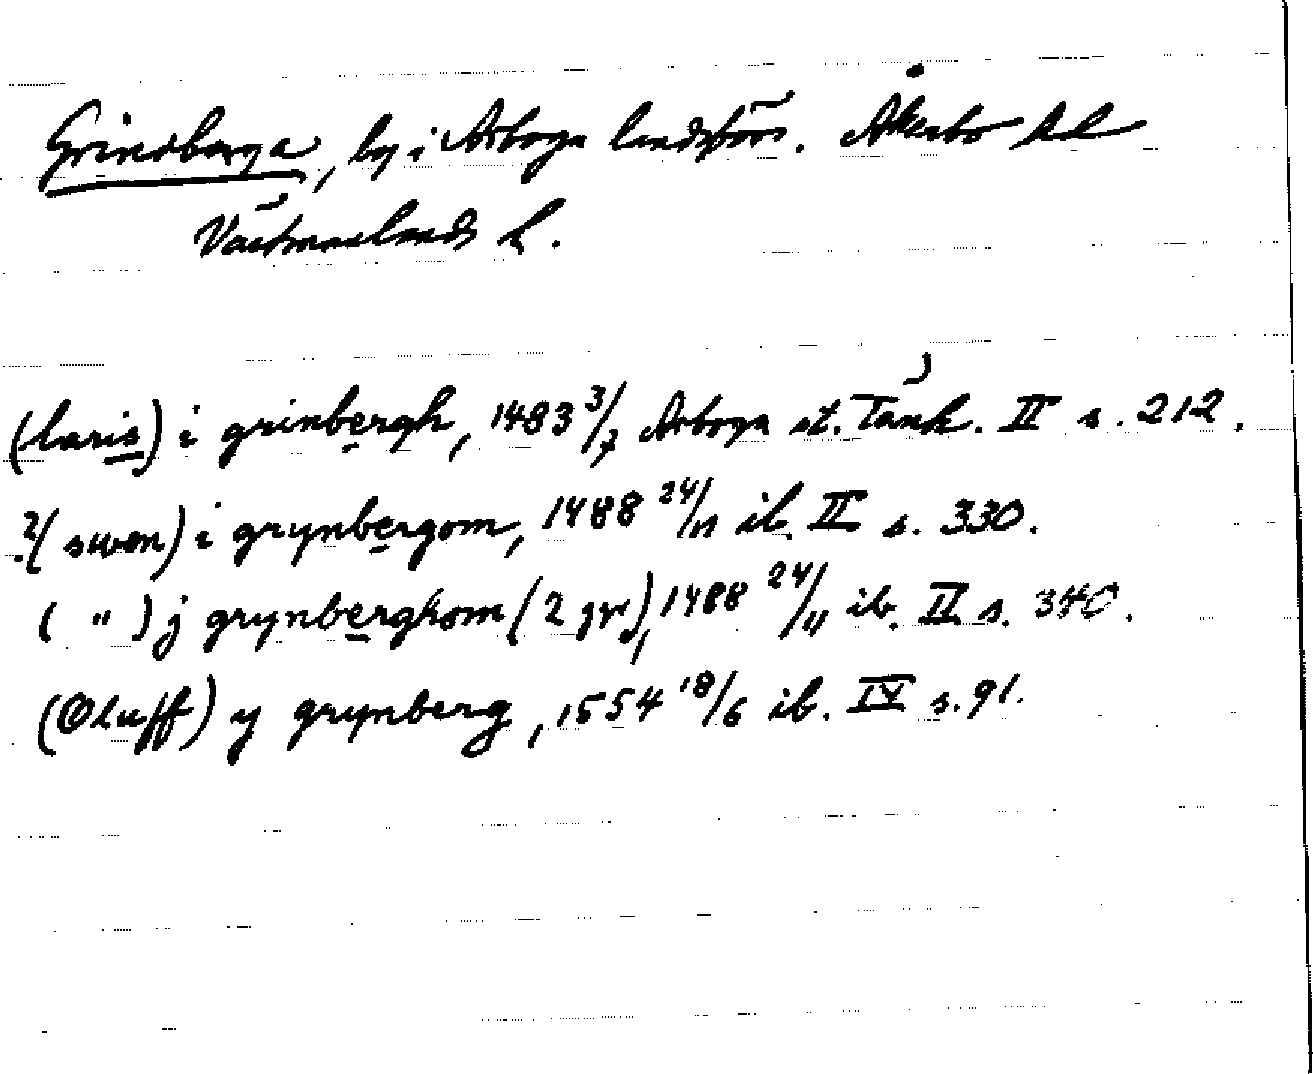 Grindberga, by i Arboga landsförs. Åkerbo hd
Västmanlands l.
(laris) i grinbergh, 1483 3/7 Arboga st. Tänk. II s. 212.
?(swen) i grynbergom, 1488 24/11 ib. II s. 330.
( " ) j grynberghom (2 gr), 1488 24/11 ib. II s. 340.
(Oluff) y grynberg, 1554 18/6 ib. IV s. 91.